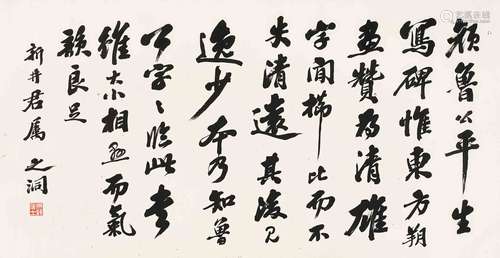 顏魯公平生
寫碑惟東方朔
畫贊為清雄
字間櫛比而不
失清遠其後見
逸少本乃知魯
公字々臨此書
雖大小相懸而氣
韻良是
新井君屬 之洞